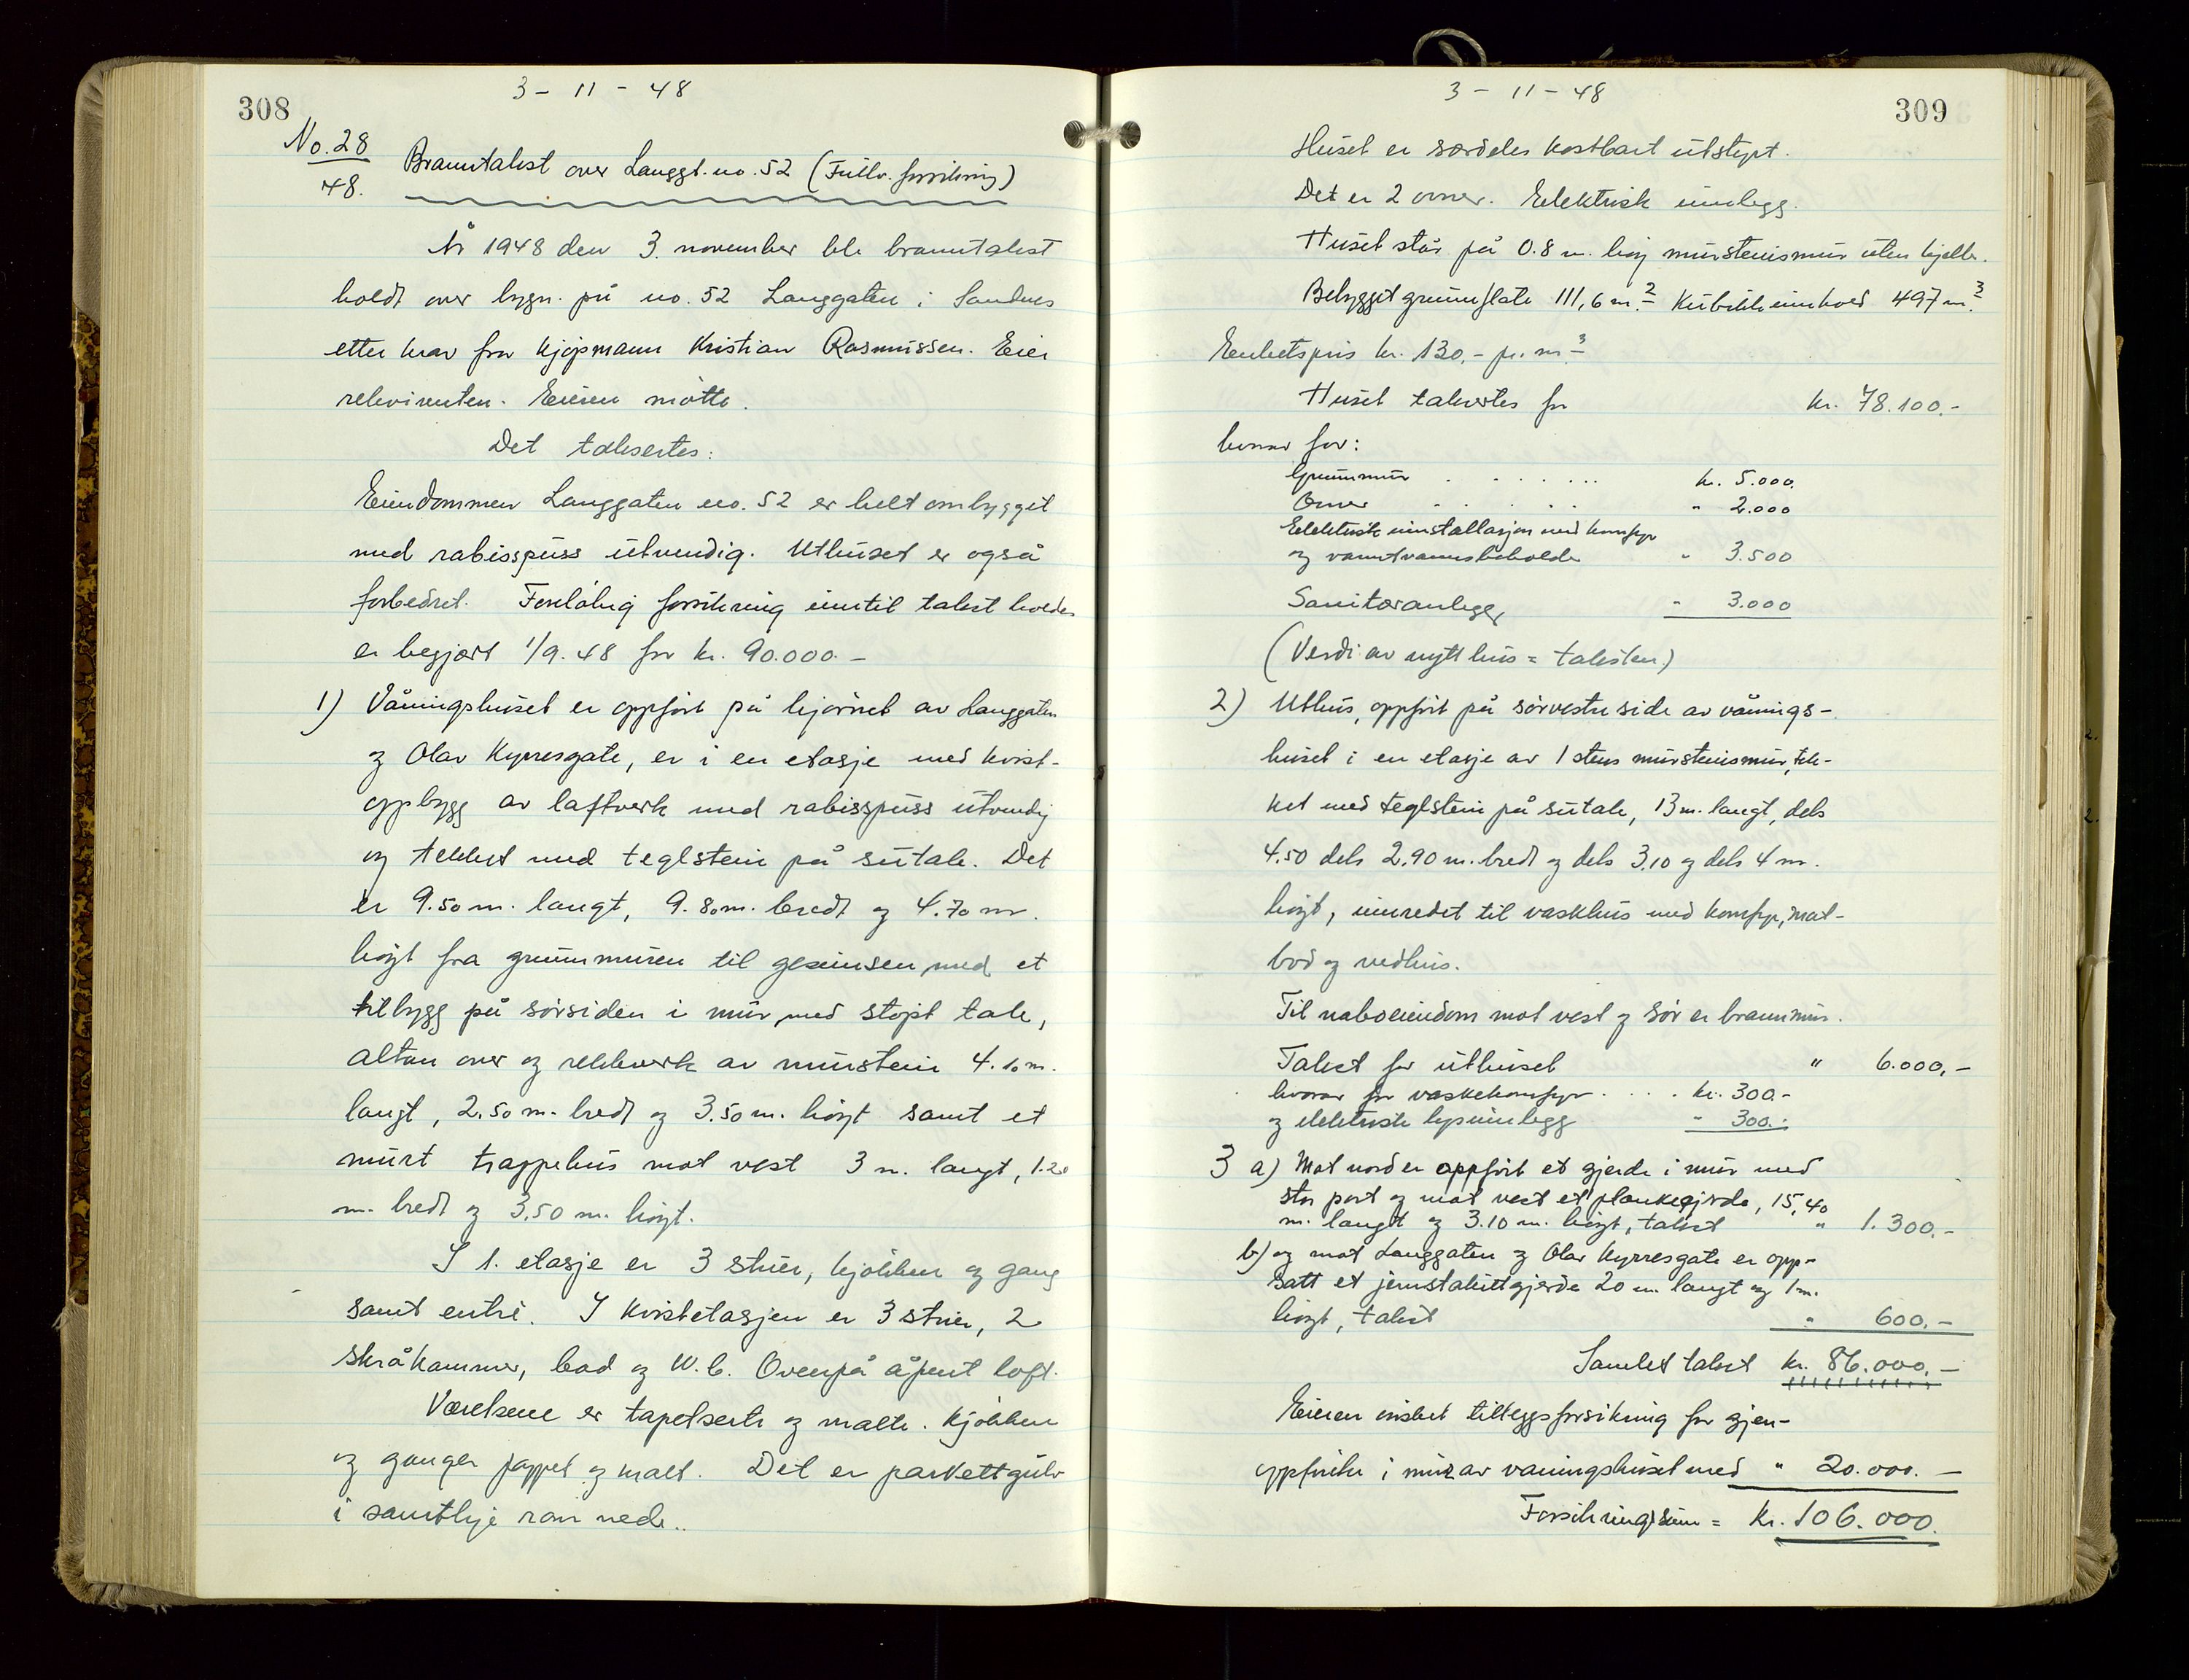 308
3 - 11 - 48
No. 28
48.
Branntakst over Langgt. no. 52 (Fullv. forsikring)
År 1948 den 3. november ble branntakst
holdt over bygn. på no. 52 Langgaten i Sandnes
etter krav fra kjøpmann Kristian Rasmussen. Eier
rekvirenten. Eieren møtte.
Det taksertes:
Eiendommen Langgaten no. 52 er helt ombygget
med rabisspuss utvendig. Uthuset er også
forbedret. Foreløbig forsikring inntil takst holdes
er begjært 1/9. 48 for kr. 90.000.-
1) Våningshuset er oppført på hjørnet av Langgaten
og Olav Kyrresgate, er i en etasje med kvist-
oppbygg av laftverk med rabisspuss utvendig
og tekket med teglstein på sutak. Det
er 9.50 m. langt, 9.80 m. bredt og 4.70 m.
høgt fra grunnmuren til gesimsen, med et
tilbygg på sørsiden i mur med støpt tak,
altan over og rekkverk av murstein 4.10 m.
langt, 2.50 m. bredt og 3.50 m. høgt samt et
murt trappehus mot vest 3 m. langt, 1.20
m. bredt og 3.50 m. høgt.
I 1. etasje er 3 stuer, kjøkken og gang
samt entré. I kvistetasjen er 3 stuer, 2
skråkammer, bad og W.C. Ovenpå åpent loft.
Værelsene er tapetserte og malte. Kjøkken
og ganger pappet og malt. Det er parkettgulv
i samtlige rom nede..
3 - 11 - 48
309
Huset er særdeles kostbart utstyrt.
Det er 2 ovner. Elektrisk innlegg.
Huset står på 0.8 m. høg murstensmur uten kjeller.
Bebygget grunnflate 111,6 m.2 Kubikkinnhold 497 m.3
Enhetspris kr. 130.- pr. m.3
Huset takseres for kr. 78.100.-
hvorav for:
Grunnmur . . . . . . kr. 5.000.
Ovner . . . . . " 2.000
Elektrisk innstallasjon med komfyr
og varmtvannsbeholder " 3.500
Sanitæranlegg " 3.000
(Verdi av nytt hus = taksten.)
2) Uthus, oppført på sørvestre side av vånings-
huset i en etasje av 1 stens murstensmur, tek-
ket med teglstein på sutak, 13 m. langt, dels
4.50 dels 2.90 m. bredt og dels 3.10 og dels 4 m.
høgt, innredet til vaskhus med komfyr, mat-
bod og vedhus.
Til naboeiendom mot vest og sør er brannmur.
Takst for uthuset " 6.000,-
hvorav for vaskekomfyr . . . . kr. 300.-
og elektrisk lysinnlegg " 300.-
3 a) Mot nord er oppført et gjerde i mur med
stor port og mot vest et plankegjerde, 15,40
m. langt og 3.10 m. høgt, takst " 1.300.-
b) og mot Langgaten og Olav Kyrresgate er opp-
satt et jernstakittgjerde 20 m. langt og 1 m.
høgt, takst " 600.-
Samlet takst kr. 86.000.-
Eieren ønsket tilleggsforsikring for gjen-
oppførelse i mur av våningshuset med " 20.000.-
Forsikringssum = kr. 106.000.